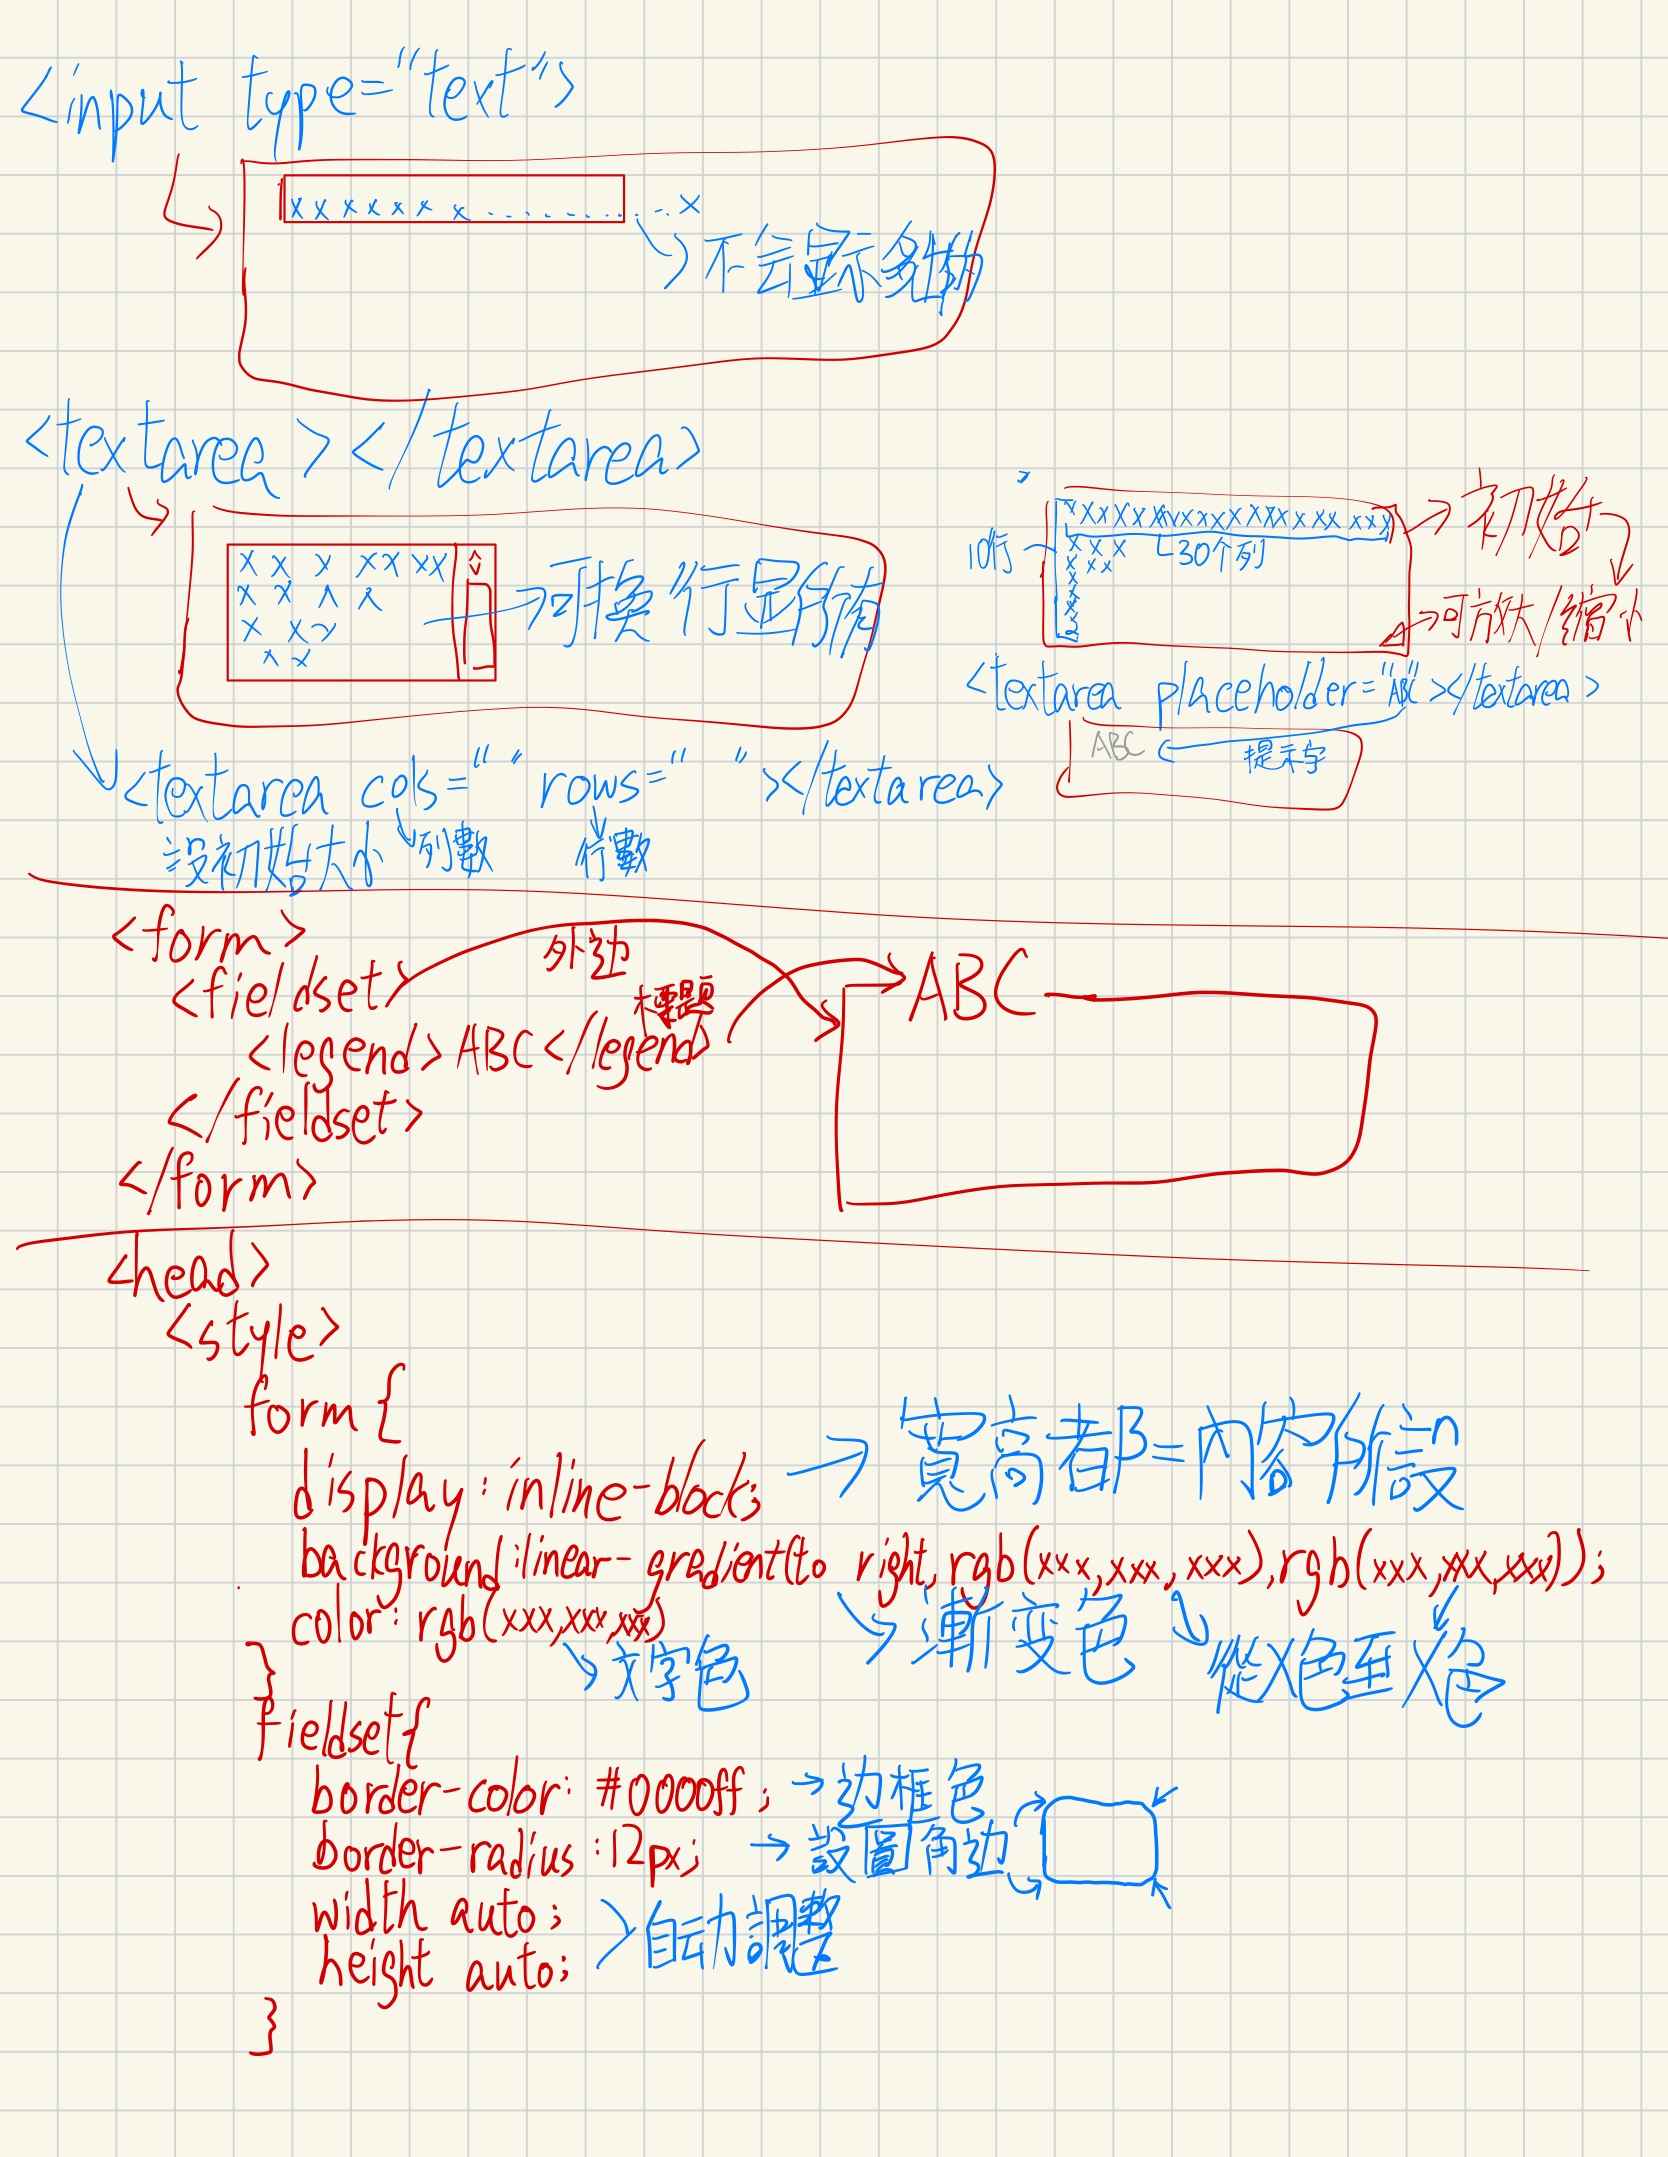 <input type="text">
xxxxxxx..............x
不会显示多出的
<textarea></textarea>
xx x xx xx
可換行显所有
xxxxxxxxxxxxxxxxxxxx
10行
30个列
初始
可放大/縮小
<textarea placeholder="ABC"></textarea>
ABC
提示字
<textarea cols=" " rows=" "></textarea>
設初始大小
列數
行數
<form>
<fieldset>
外边
標題
<legend>ABC</legend>
ABC
</fieldset>
</form>
<head>
<style>
form{
display:inline-block;
寬高都=內容所設
background:linear-gradient(to right,rgb(xxx,xxx,xxx),rgb(xxx,xxx,xxx));
color:rgb(xxx,xxx,xxx)
文字色
漸变色
從X色至X色
}
fieldset{
border-color:#0000ff;
边框色
border-radius:12px;
設圓角边
width auto;
height auto;
自动調整
}